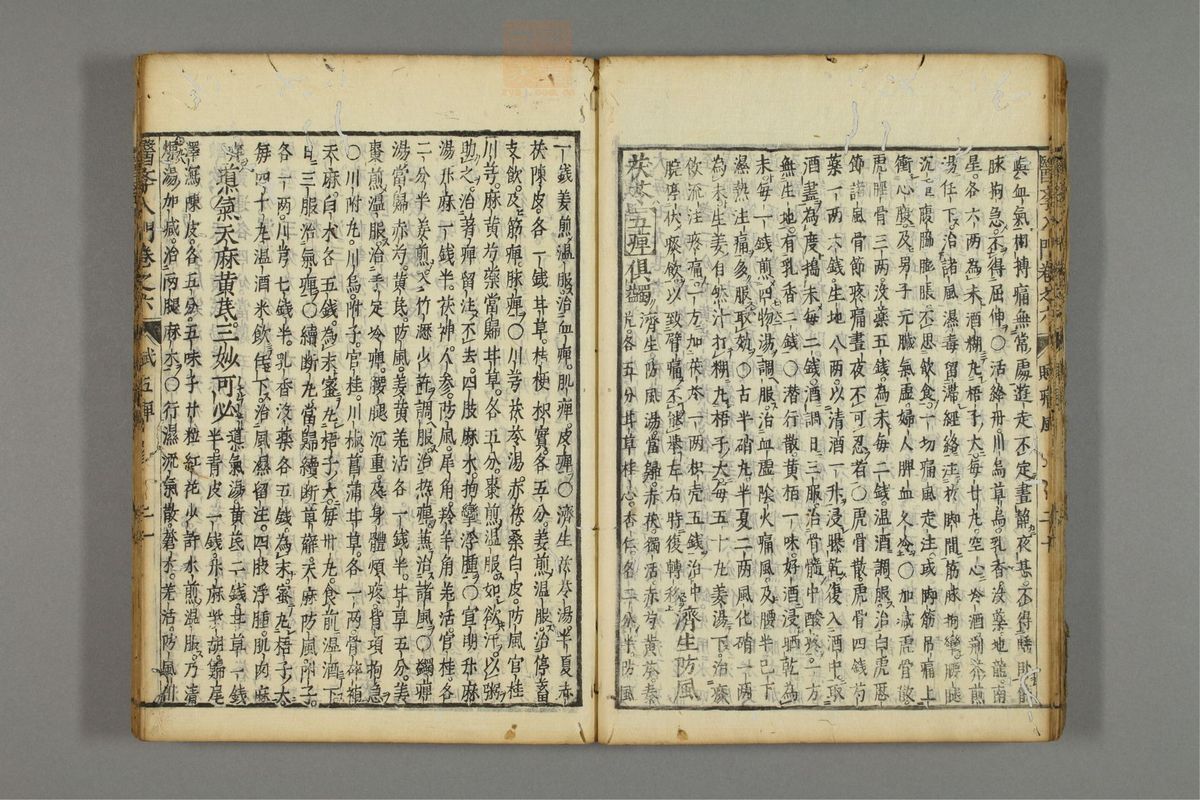 與血氣相搏痛無常處遊走不定晝靜夜甚不得睡臥
脉拘急不得屈伸○活絡丹川烏草烏乳香沒藥地龍南
星各六兩為末酒糊丸梧子大每廿丸空心冷酒
湯任下治諸風濕毒留滯經絡注於脚間筋脉拘攣腰腿
沉
腹脇膨脹不思飲食一切痛風走注或脚筋吊痛上
衝心腹及男子元臟氣虛婦人脾血久冷○加減虎骨散
虎脛骨三兩沒藥五錢為末每二錢溫酒調服治白虎歷
節諸風骨節疼痛晝夜不可忍者○虎骨散虎骨四錢芍
藥一兩六錢生地八兩以清酒一升浸曝乾復入酒中取
酒盡為度搗末每二錢酒調日三服治骨髓中酸疼一方
無生地有乳香二錢○潛行散黃栢一味好酒浸晒乾為
末每一錢煎四物湯調服治血虛陰火痛風及腰半已下
濕熱注痛多服取效○古半硝丸半夏二兩風化硝一兩
為末生姜自然汁打糊丸梧子大每五十丸姜湯下治痰
飲流注疼痛一方加茯苓一兩枳売五錢治中
腕停伏痰飲以致臂痛不能舉左右時復轉移
濟生防風
茯苓五痺俱蠲
濟生防風湯當歸赤茯獨活赤芍黃芩秦
芃各五分甘草桂心杏仁各二分半防風
一錢姜煎溫服治血痺肌痺皮痺○濟生茯苓湯半夏赤
茯陳皮各一錢甘草桂梗枳實各五分姜煎溫服治停蓄
支飲及筋痺脉痺○川芎茯苓湯赤茯桑白皮防風官桂
川芎麻黃芍藥當歸甘草各五分棗煎溫服如欲汗以粥
助之治著痺留注不去四肢麻木拘攣浮腫○宣明升麻
湯升麻一錢半茯神人參防風犀角羚羊角羌活官桂各
二分半姜煎入竹瀝少許調服治熱痺兼治諸風○蠲痺
湯當歸赤芍黃芪防風姜黃羌活各一錢半甘草五分姜
棗煎溫服治手足冷痺腰腿沉重及身體煩疼背項拘急
○川附丸川烏附子官桂川椒菖蒲甘草各一兩骨碎補
天麻白朮各五錢為末蜜丸梧子大每卅丸食前溫酒下
日三服治氣痺○續斷丸當歸續斷草薢天麻防風附子
各一兩川芎七錢半乳香沒藥各五錢為末蜜丸梧子大
每四十丸溫酒米飲任下治風濕留注四肢浮腫肌肉麻
痺
道氣天麻黃芪三妙可必
導氣湯黃芪二錢甘草一錢
半青皮一錢升麻柴胡歸尾
澤瀉陳皮各五分五味子廿粒紅花少許水煎溫服乃清
燥湯加減治兩腿麻木○行濕流氣散蒼朮羌活防風川
醫學入門卷之六
痺風
二十
醫學入門卷之六
貳五痺
二十一